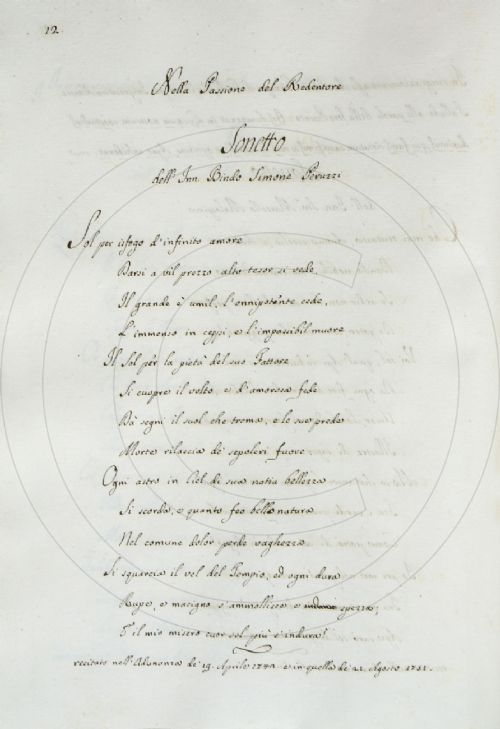 12.
Nella Passione del Redentore
Sonetto
dell' Inn. Bindo Simone Peruzzi
Sol per isfogo d'infinito amore
Darsi a vil prezzo alto tesor si vede,
Il grande è umil, l'onnipotente cede,
L'immenso in ceppi, e l'impossibil muore
Il Sol per la pietà del suo Fattore
Si cuopre il volto, e d'amorosa fede
Dà segni il suol che trema, e le sue prede
Morte rilascia de' sepolcri fuore.
Ogni astro in Ciel di sua natia bellezza
Si scorda, e quanto feo bella natura
Nel comune dolor perde vaghezza
Si squarcia il vel del Tempio, ed ogni dura
Rupe, e macigno s'ammollisce e spezza;
E il mio misero cuor sol più s'indura!
recitato nell' Adunanza de' 19. Aprile e in quella de' 21. Agosto 1751.